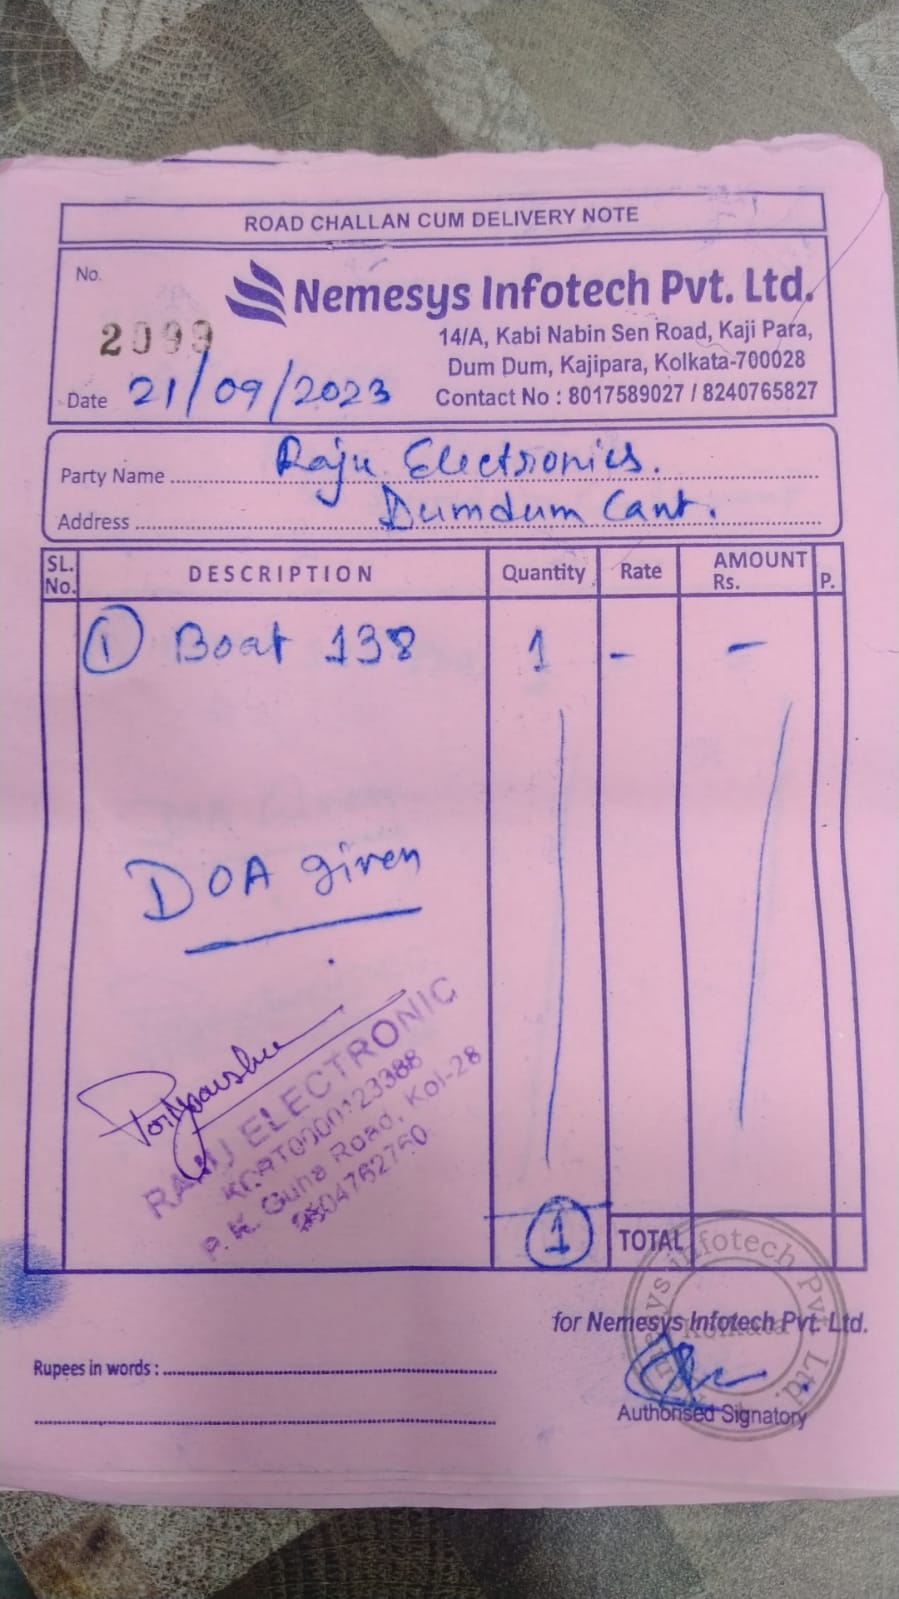 ROAD CHALLAN CUM DELIVERY NOTE
No.
2099
Nemesys Infotech Pvt. Ltd.
14/A, Kabi Nabin Sen Road, Kaji Para,
Dum Dum, Kajipara, Kolkata-700028
Contact No : 8017589027 / 8240765827
Date 21/09/2023
Party Name Raju Electronics.
Address Dumdum Cant.
SL. No. DESCRIPTION Quantity Rate AMOUNT Rs. P.
① Boat 138 1 - -
DOA given
RAJU ELECTRONIC
P. K. Guha Road, Kol-28
1 TOTAL
Nemesys Infotech Pvt. Ltd.
Kolkata
for Nemesys Infotech Pvt. Ltd.
Rupees in words :
Authorised Signatory